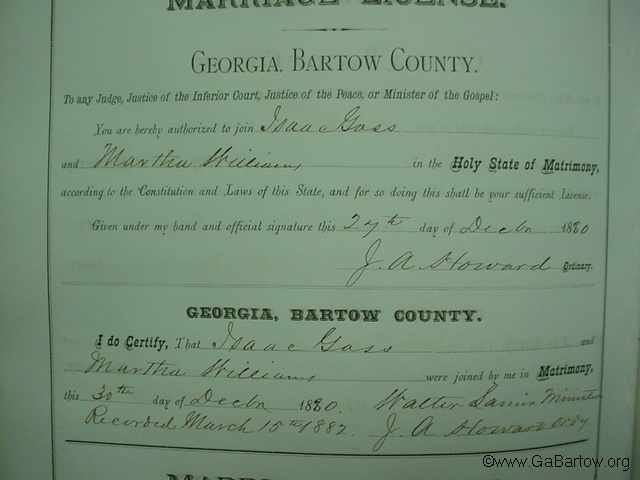 MARRIAGE LICENSE.
GEORGIA, BARTOW COUNTY.
To any Judge, Justice of the Inferior Court, Justice of the Peace, or Minister of the Gospel:
You are hereby authorized to join Isaac Goss
and Martha Williams in the Holy State of Matrimony,
according to the Constitution and Laws of this State, and for so doing this shall be your sufficient License.
Given under my hand and official signature this 27th day of Decbr 1880
J. A. Howard Ordinary.
GEORGIA, BARTOW COUNTY.
I do Certify, That Isaac Goss and
Martha Williams were joined by me in Matrimony,
this 30th day of Decbr 1880. Walter Minister
Recorded March 15th 1882. J. A Howard Ordy
©www.GaBartow.org